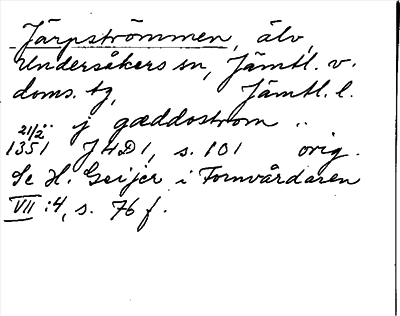 Järpströmmen, älv,
Undersåkers sn, Jämtl. v.
doms. tg, Jämtl. l.
21/2 j gæddostrom ..
1351 J4D1, s. 101 orig.
Se H. Geijer i Fornvårdaren
VII:4, s. 76 f.